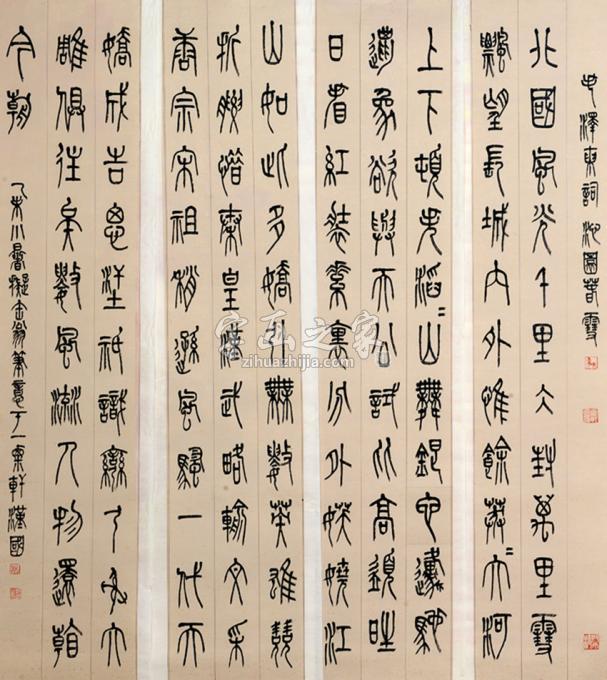 毛澤東詞沁園春雪
北國風光千里冰封萬里雪
飄望長城內外惟餘莽〻大河
上下頓失滔〻山舞銀蛇邍馳
蠟象欲與天公試比高須晴
日看紅裝素裹分外妖嬈江
山如此多嬌引無數英雄競
折腰惜秦皇漢武略輸文采
唐宗宋祖稍遜風騷一代天
嬌成吉思汗祇識彎弓射大
雕俱往矣數風流人物還看
今朝
乙未小暑擬缶翁筆意于一粟軒漢國
字画之家
zihuazhijia.com